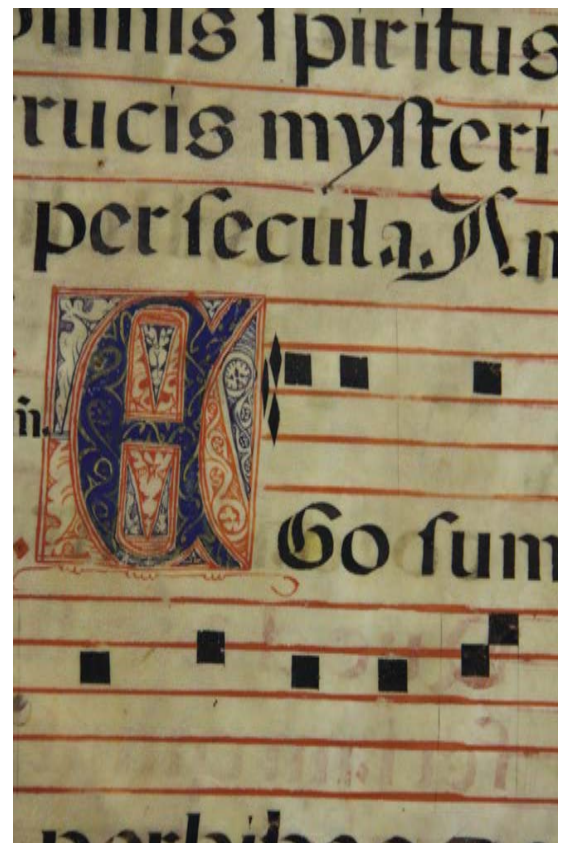 omnis spiritus
crucis mysteri
per secula. An
m̃.
EGo sum